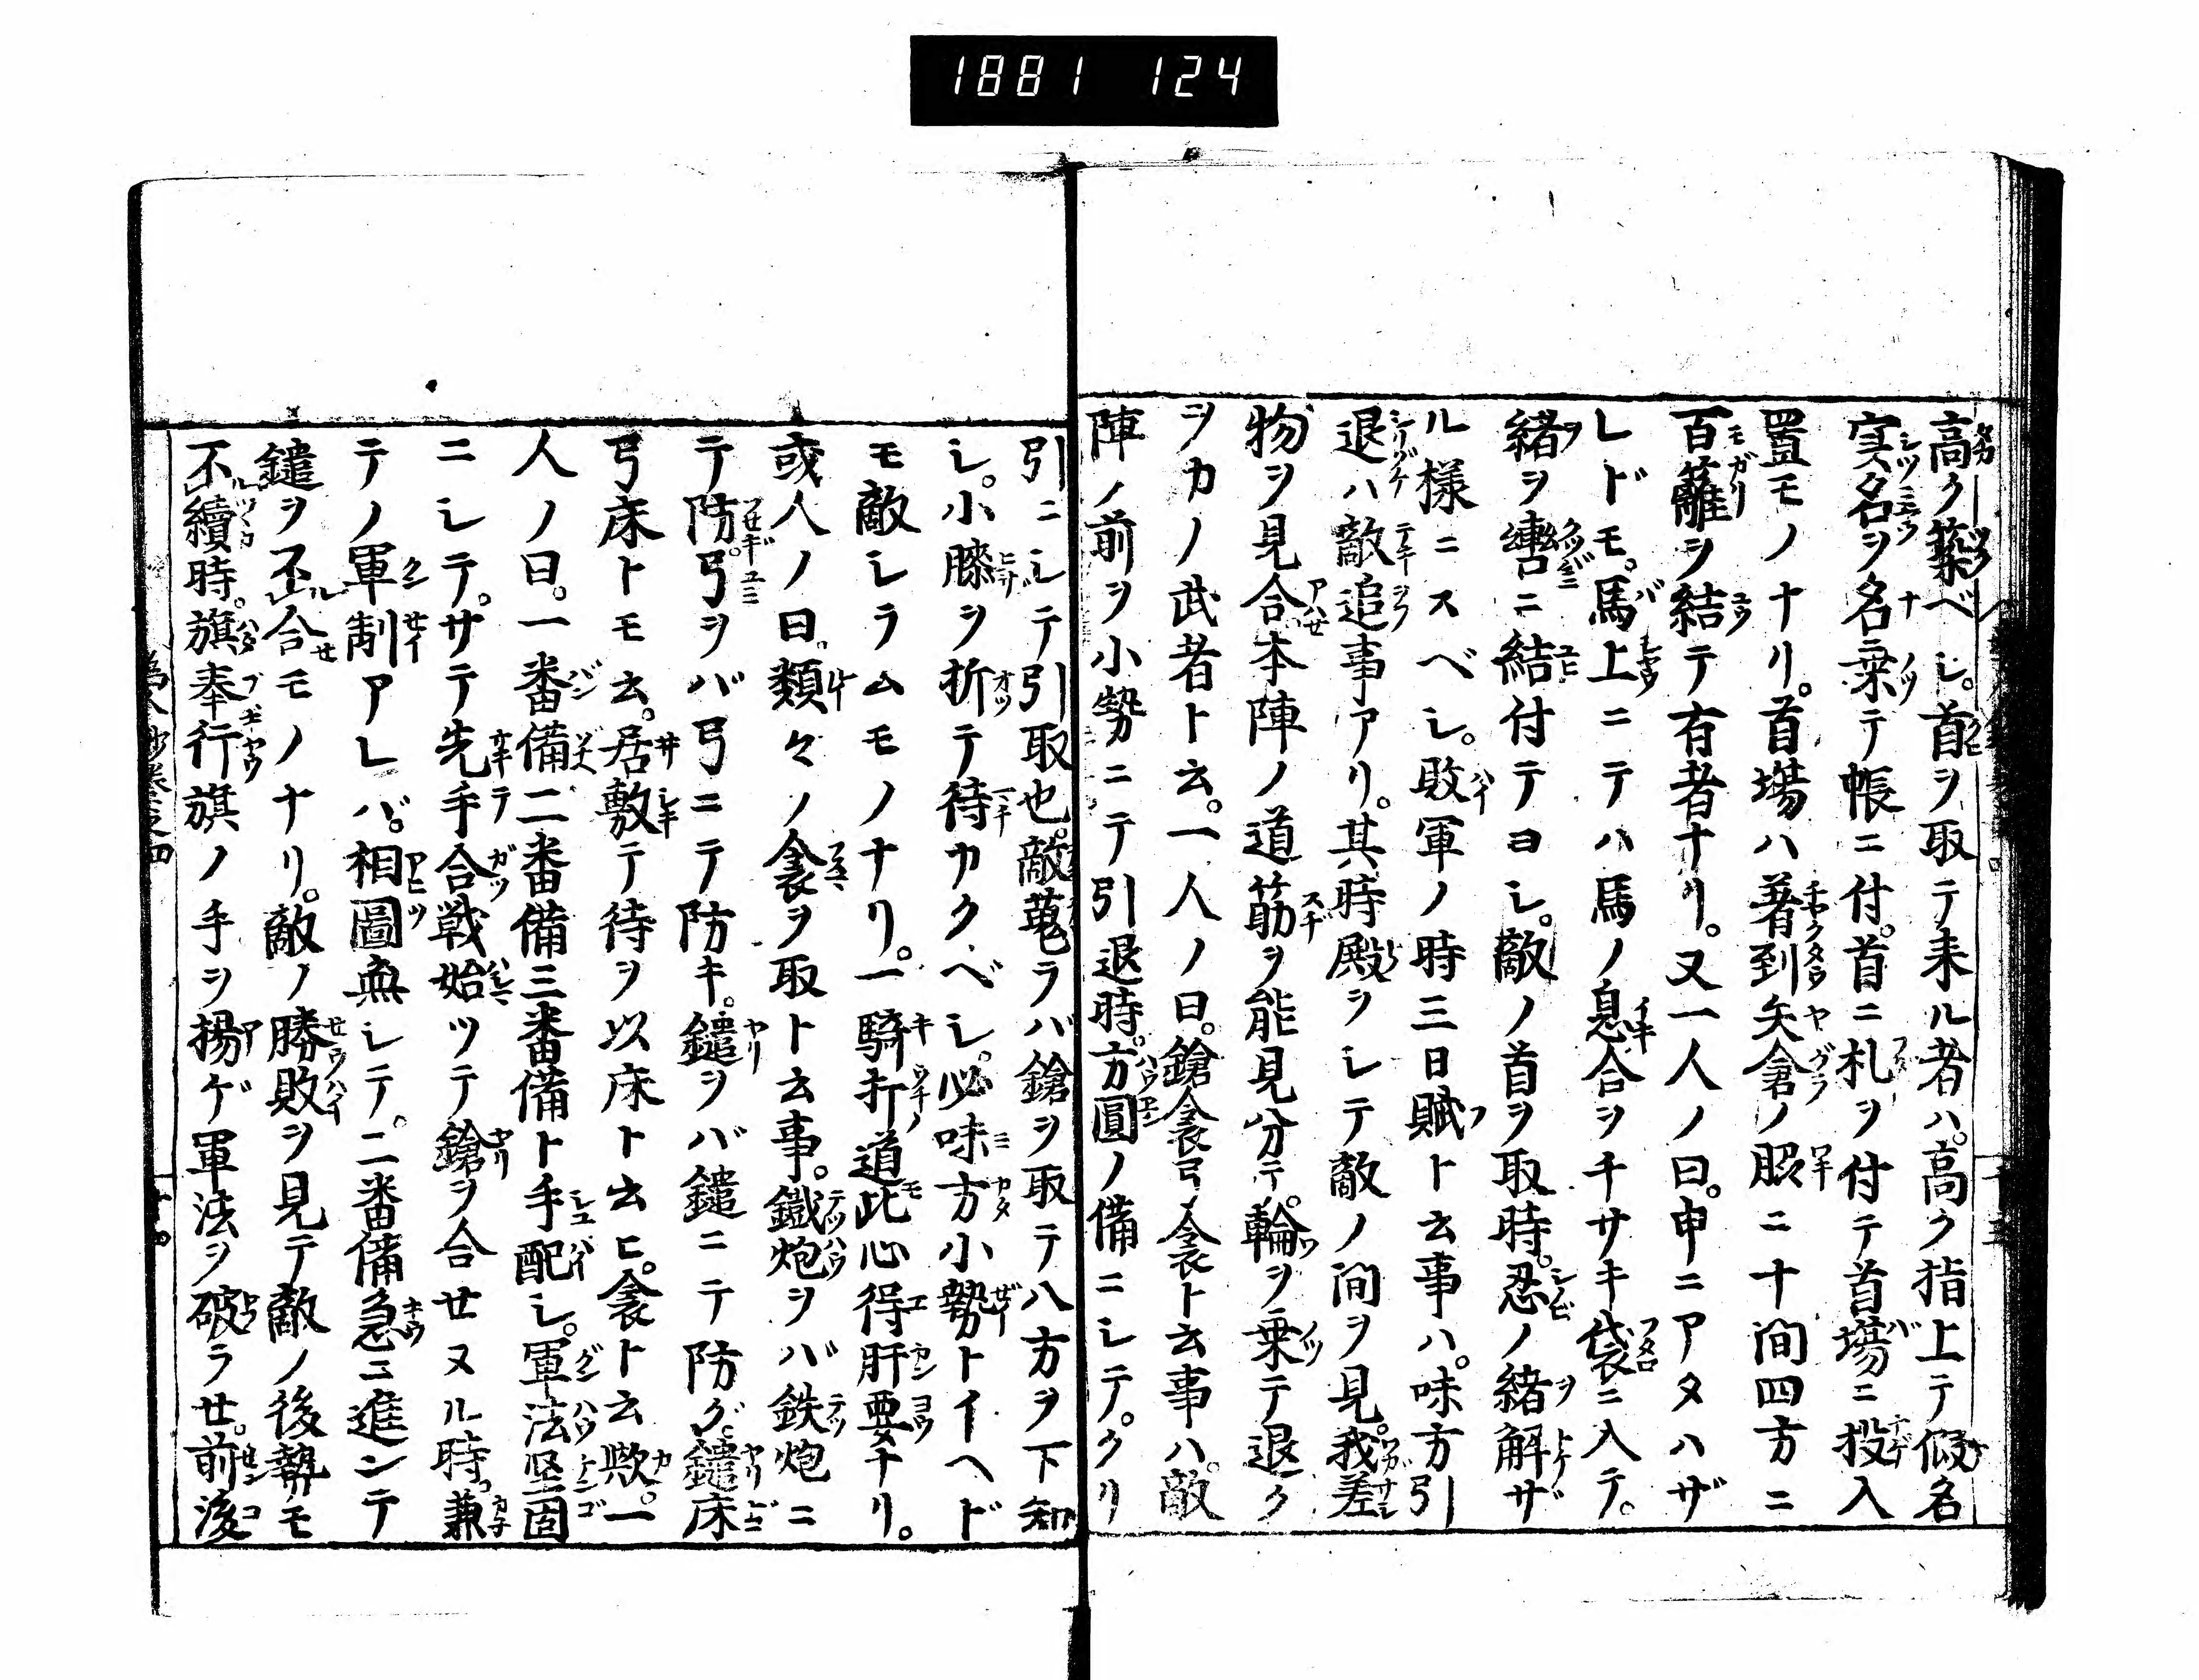 1881 124
高ク築ベシ。首ヲ取テ来ル者ハ。高ク指上テ仮名
実名ヲ名乗テ帳ニ付。首ニ札ヲ付テ首場ニ投入
置モノナリ。首場ハ著到矢倉ノ脇ニ十間四方ニ
百籬ヲ結テ有者ナリ。又一人ノ曰。申ニアタハザ
レドモ。馬上ニテハ馬ノ息合ヲチサキ袋ニ入テ。
緒ヲ轡ニ結付テヨシ。敵ノ首ヲ取時。忍ノ緒解ザ
ル様ニスベシ。敗軍ノ時三日賦ト云事ハ。味方引
退ハ敵追事アリ。其時殿ヲシテ敵ノ間ヲ見。我差
物ヲ見合本陣ノ道筋ヲ能見分テ。輪ヲ乗テ退ク
ヲカノ武者ト云。一人ノ曰。鎗衾弓衾ト云事ハ。敵
陣ノ前ヲ小勢ニテ引退時。方圓ノ備ニシテ。クリ
引ニシテ引取也。敵蒐ラバ鎗ヲ取テ八方ヲ下知
シ。小膝ヲ折テ待カクベシ。必味方小勢トイヘド
モ敵シラムモノナリ。一騎打道此心得肝要ナリ。
或人ノ曰。類々ノ衾ヲ取ト云事。鐵炮ヲバ鉄炮ニ
テ防。弓ヲバ弓ニテ防キ。鑓ヲバ鑓ニテ防グ。鑓床
弓床トモ云。居敷テ待ヲ以床ト云ヒ。衾ト云歟。一
人ノ曰。一番備二番備三番備ト手配シ。軍法堅固
ニシテ。サテ先手合戦始ツテ鎗ヲ合セヌル時。兼
テノ軍制アレバ。相圖無シテ。二番備急ニ進ンテ
鑓ヲ不合モノナリ。敵ノ勝敗ヲ見テ敵ノ後勢モ
不續時。旗奉行旗ノ手ヲ揚ゲ軍法ヲ破ラせ。前後